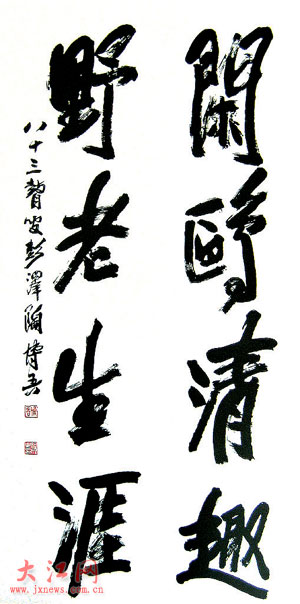 閑鷗清趣
野老生涯
八十三瞽叟彭澤陶博吾
大江网
www.jxnews.com.cn